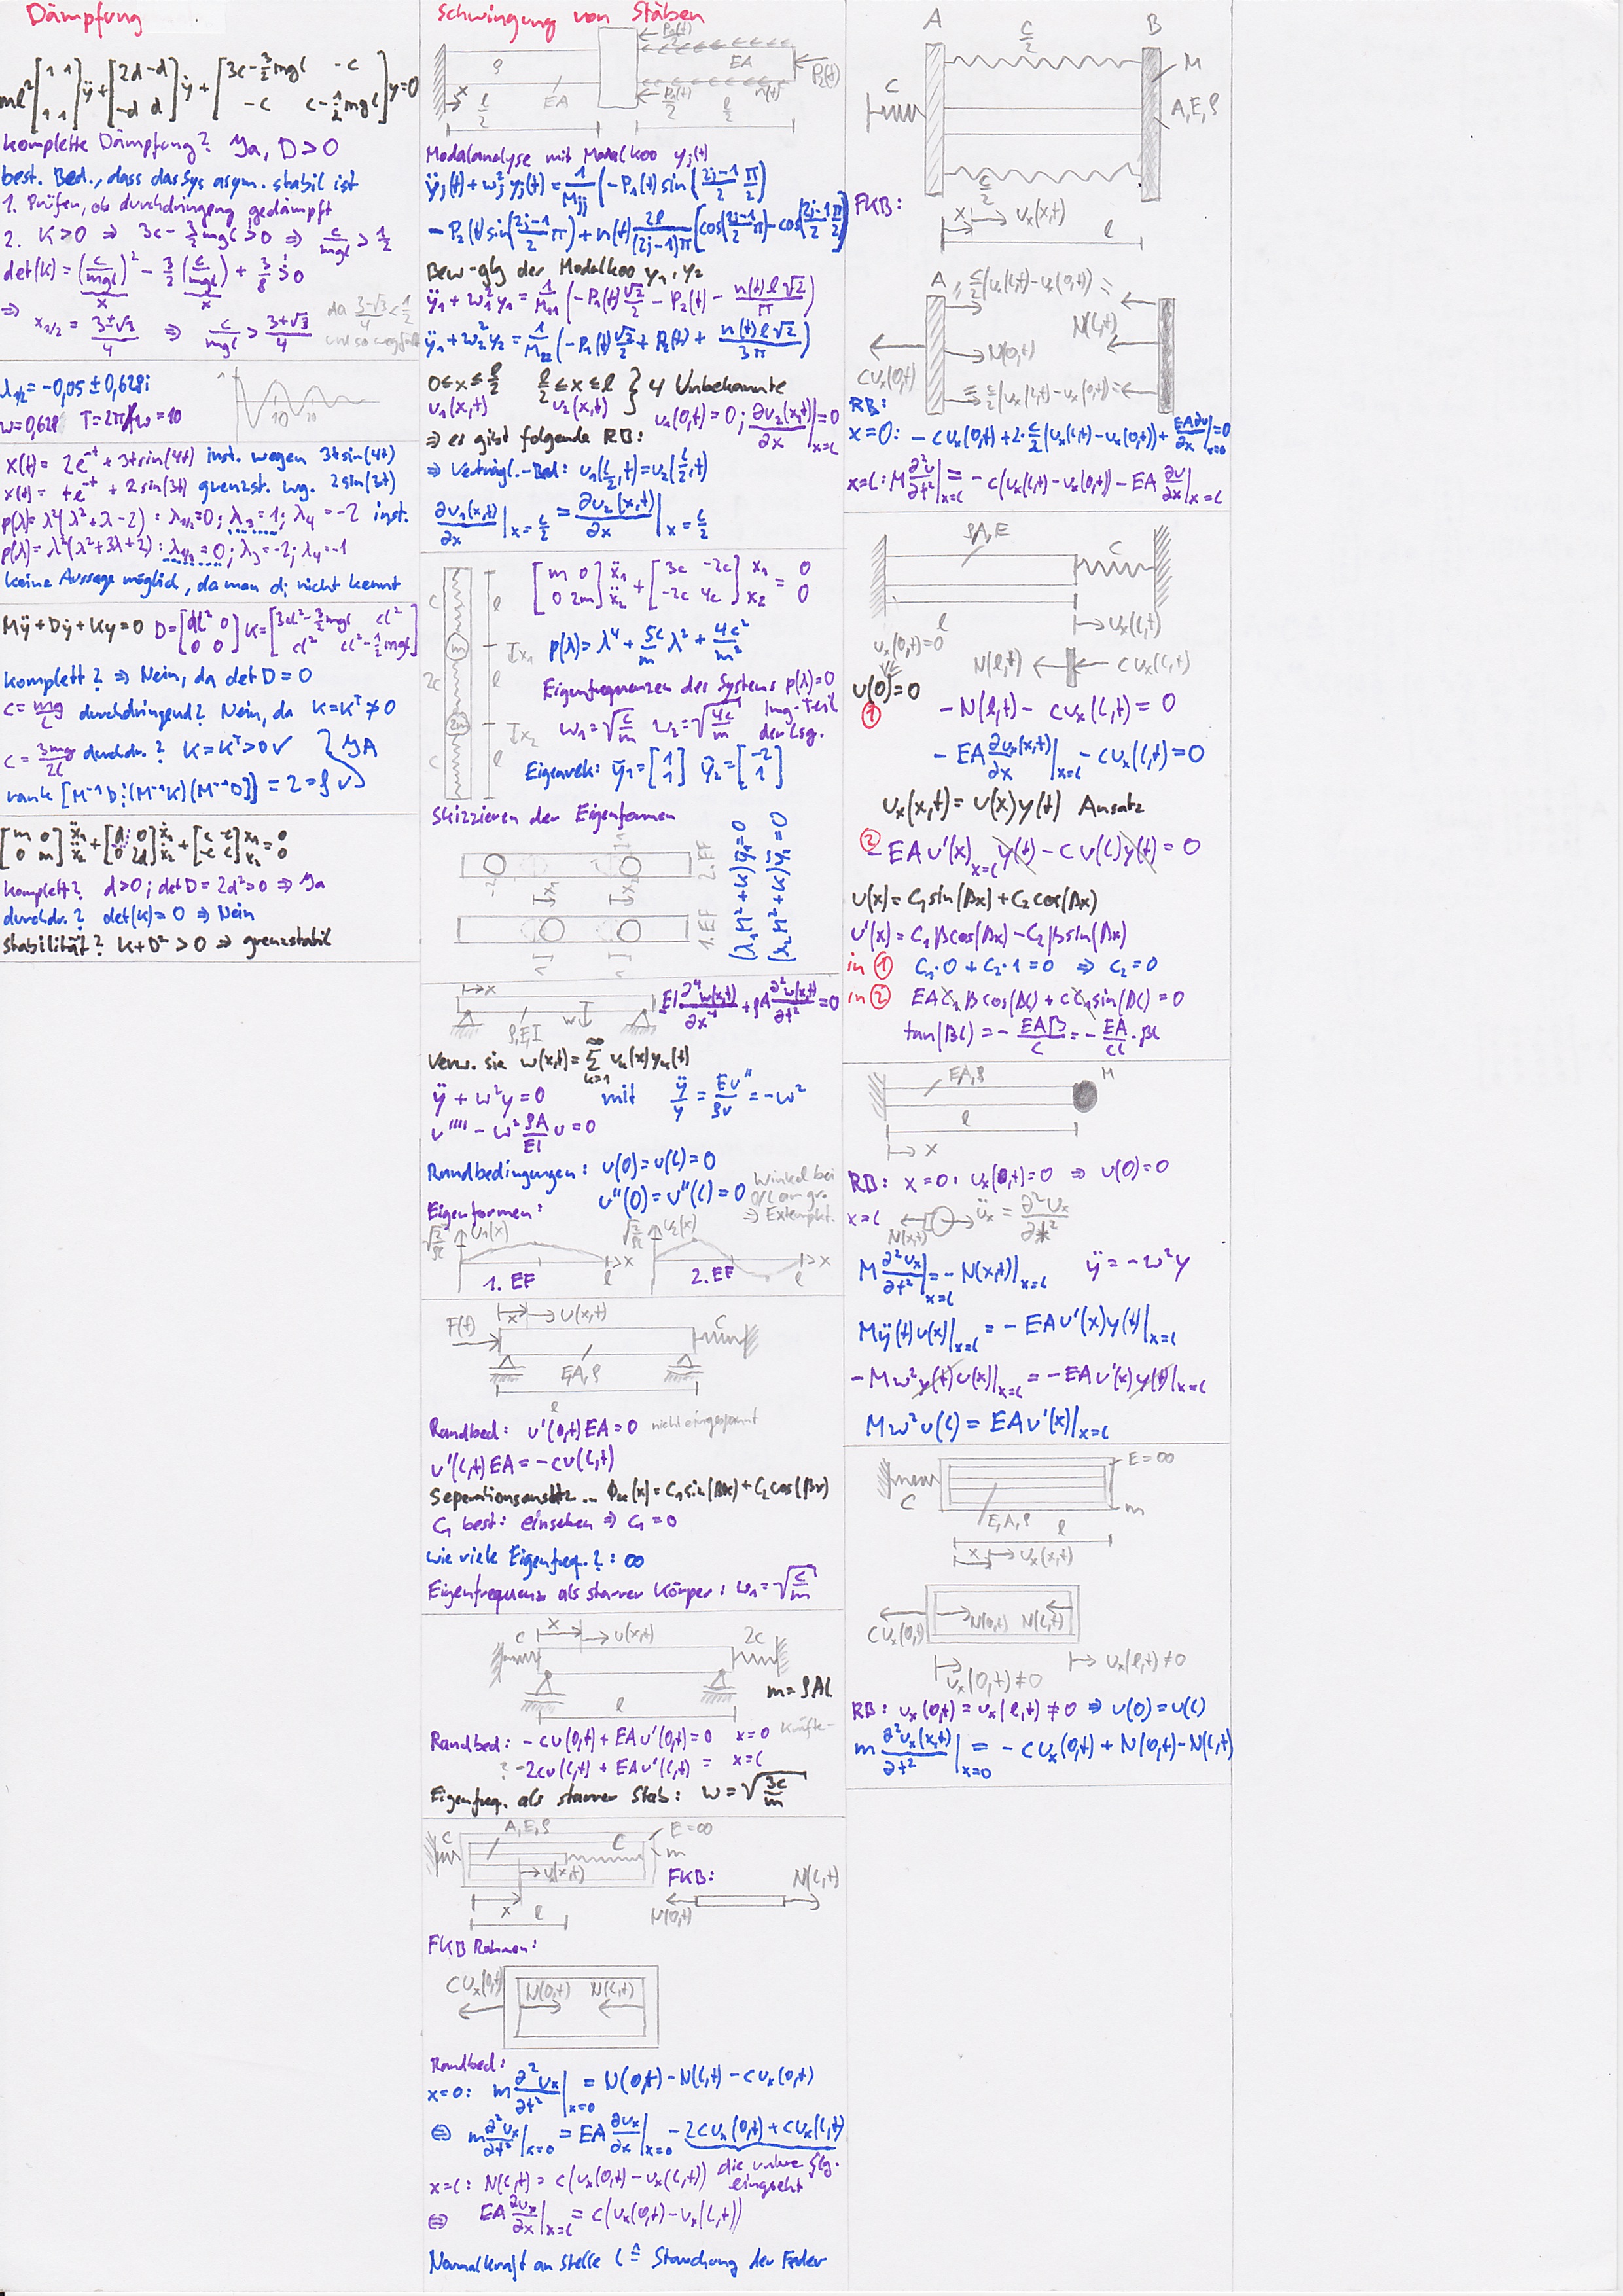 Dämpfung
ml²[1 1; 1 1]ÿ + [2d -d; -d d]ẏ + [3c-3/2mgl -c; -c c-1/2mgl]y=0
komplette Dämpfung? Ja, D>0
best. Bed., dass das Sys asym. stabil ist
1. Prüfen, ob durchdringeng gedämpft
2. K>0 ⇒ 3c-3/2mgl>0 ⇒ c/mgl > 1/2
det(K) = (c/mgl)² - 3/2(c/mgl) + 3/8 > 0
x x
⇒ x1/2 = 3±√3/4 ⇒ c/mgl > 3+√3/4
da 3-√3/4 < 1/2
λ1/2 = -0,05 ± 0,628i
w=0,628 T=2π/w=10
10 20
x(t) = 2e^-t + 3t sin(4t) inst. wegen 3t sin(4t)
x(t) = te^-t + 2 sin(3t) grenzst. wg. 2sin(3t)
p(λ) = λ²(λ²+λ-2) : λ1/2=0; λ3=1; λ4=-2 inst.
p(λ) = λ²(λ²+3λ+2) : λ1/2=0; λ3=-2; λ4=-1
keine Aussage möglich, da man di nicht kennt
Mÿ+Dẏ+Ky=0 D=[dl² 0; 0 0] K=[3cl²-3/2mgl cl²; cl² cl²-1/2mgl]
komplett? ⇒ Nein, da det D = 0
c=mg/l durchdringend? Nein, da K=K^T≯0
c=3mg/2l durchdr.? K=K^T>0 ✓ } JA
rank [M⁻¹D¦(M⁻¹K)(M⁻¹D)] = 2 = f ✓
[m 0; 0 m] ẍ1 ẍ2 + [d 0; 0 2d] ẋ1 ẋ2 + [c -c; -c c] x1 x2 = 0 0
komplett? d>0; det D=2d²>0 ⇒ Ja
durchdr.? det(K)=0 ⇒ Nein
Stabilität? K+D² >0 ⇒ grenzstabil
Schwingung von Stäben
P1(t)/2
ρ EA P2(t)
x l/2 EA P1(t)/2 l/2 n(t)
Modalanalyse mit Modalkoo yj(t)
ÿj(t)+wj²yj(t) = 1/Mjj (-P1(t) sin(2j-1/2 π/2)
-P2(t) sin(2j-1/2 π) + n(t) 2l/(2j-1)π [cos(2j-1/2 π)-cos(2j-1/2 π/2)])
Bew-glg der Modalkoo y1, y2
ÿ1+w1²y1 = 1/M11 (-P1(t)√2/2 - P2(t) - n(t)l√2/π)
ÿ1+w2²y2 = 1/M22 (-P1(t)√2/2 + P2(t) + n(t)l√2/3π)
0≤x≤l/2 l/2≤x≤l } 4 Unbekannte
u1(x,t) u2(x,t) u1(0,t)=0; ∂u2(x,t)/∂x|x=l=0
⇒ es gibt folgende RB:
⇒ Verträgl.-Bed: u1(l/2,t)=u2(l/2,t)
∂u1(x,t)/∂x|x=l/2 = ∂u2(x,t)/∂x|x=l/2
c l m x1 2c l 2m x2 c l
[m 0; 0 2m] ẍ1 ẍ2 + [3c -2c; -2c 4c] x1 x2 = 0 0
p(λ)=λ⁴+5c/m λ²+4c²/m²
Eigenfrequenzen des Systems p(λ)=0
w1=√c/m w2=√4c/m Img-Teil der Lsg.
Eigenvek: ȳ1=[1 1] ȳ2=[-2 1]
Skizzieren der Eigenformen
-2 x1 x2 1 2.EF
1 1 1.EF
(λ1M²+K)ȳ1=0
(λ2M²+K)ȳ2=0
x ρ,E,I w
EI ∂⁴w(x,t)/∂x⁴ + ρA ∂²w(x,t)/∂t²=0
Verw. sie w(x,t)=∑ k=1 ∞ uk(x)yk(t)
ÿ+w²y=0 mit ÿ/y = Eu''/ρu = -w²
u''''-w² ρA/EI u=0
Randbedingungen: u(0)=u(l)=0
u''(0)=u''(l)=0 Winkel bei 0/l am gr. ⇒ Extrempkt.
Eigenformen:
u1(x) x l 1. EF
u2(x) x l 2. EF
F(t) x u(x,t) c
E,A,ρ
l
Randbed: u'(0,t)EA=0 nicht eingespannt
u'(l,t)EA=-cu(l,t)
Seperationsansatz... Φk(x)=C1sin(βx)+C2cos(βx)
C1 best: einsetzen ⇒ C1=0
wie viele Eigenfreq.?: ∞
Eigenfrequenz als starrer Körper: w1=√c/m
c x u(x,t) 2c
l m=ρAl
Randbed: -cu(0,t)+EAu'(0,t)=0 x=0 Kräfte-
? -2cu(l,t)+EAu'(l,t)= x=l
Eigenfreq. als starrer Stab: w=√3c/m
c A,E,ρ c E=∞ m
u(x,t) x l
FKB: N(0,t) N(l,t)
FKB Rahmen:
cux(0,t) N(0,t) N(l,t)
Randbed:
x=0: m ∂²ux/∂t²|x=0 = N(0,t)-N(l,t)-cux(0,t)
⇔ m ∂²ux/∂t²|x=0 = EA ∂ux/∂x|x=0 -2cux(0,t)+cux(l,t)
x=l: N(l,t)=c(ux(0,t)-ux(l,t)) die untere Glg. eingsetzt
⇔ EA ∂ux/∂x|x=l = c(ux(0,t)-ux(l,t))
Normalkraft an Stelle l ≙ Stauchung der Feder
A c/2 B
M
c A,E,ρ
c/2
FKB:
x ux(x,t)
l
A c/2(ux(l,t)-ux(0,t))
N(l,t)
N(0,t)
cux(0,t) c/2(ux(l,t)-ux(0,t))
RB:
x=0: -cux(0,t)+2·c/2(ux(l,t)-ux(0,t))+EA∂u/∂x|x=0=0
x=l: M ∂²u/∂t²|x=l = -c(ux(l,t)-ux(0,t))-EA ∂u/∂x|x=l
ρA,E c
l ux(l,t)
ux(0,t)=0
N(l,t) cux(l,t)
u(0)=0
① -N(l,t)-cux(l,t)=0
-EA ∂ux(x,t)/∂x|x=l -cux(l,t)=0
ux(x,t)=u(x)y(t) Ansatz
② -EAu'(x)x=l y(t)-cu(l)y(t)=0
u(x)=C1sin(βx)+C2cos(βx)
u'(x)=C1βcos(βx)-C2βsin(βx)
in ① C1·0+C2·1=0 ⇒ C2=0
in ② EAC1βcos(βl)+cC1sin(βl)=0
tan(βl)=-EAβ/c=-EA/cl·βl
EA,ρ M
l
x
RB: x=0: ux(0,t)=0 ⇒ u(0)=0
x=l N(x,t) üx=∂²ux/∂t²
M ∂²ux/∂t²|x=l=-N(x,t)|x=l ÿ=-w²y
Mÿ(t)u(x)|x=l=-EAu'(x)y(t)|x=l
-Mw²y(t)u(x)|x=l=-EAu'(x)y(t)|x=l
Mw²u(l)=EAu'(x)|x=l
c E=∞ m
E,A,ρ l
x ux(x,t)
cux(0,t) N(0,t) N(l,t)
ux(0,t)≠0 ux(l,t)≠0
RB: ux(0,t)=ux(l,t)≠0 ⇒ u(0)=u(l)
m ∂²ux(x,t)/∂t²|x=0 = -cux(0,t)+N(0,t)-N(l,t)